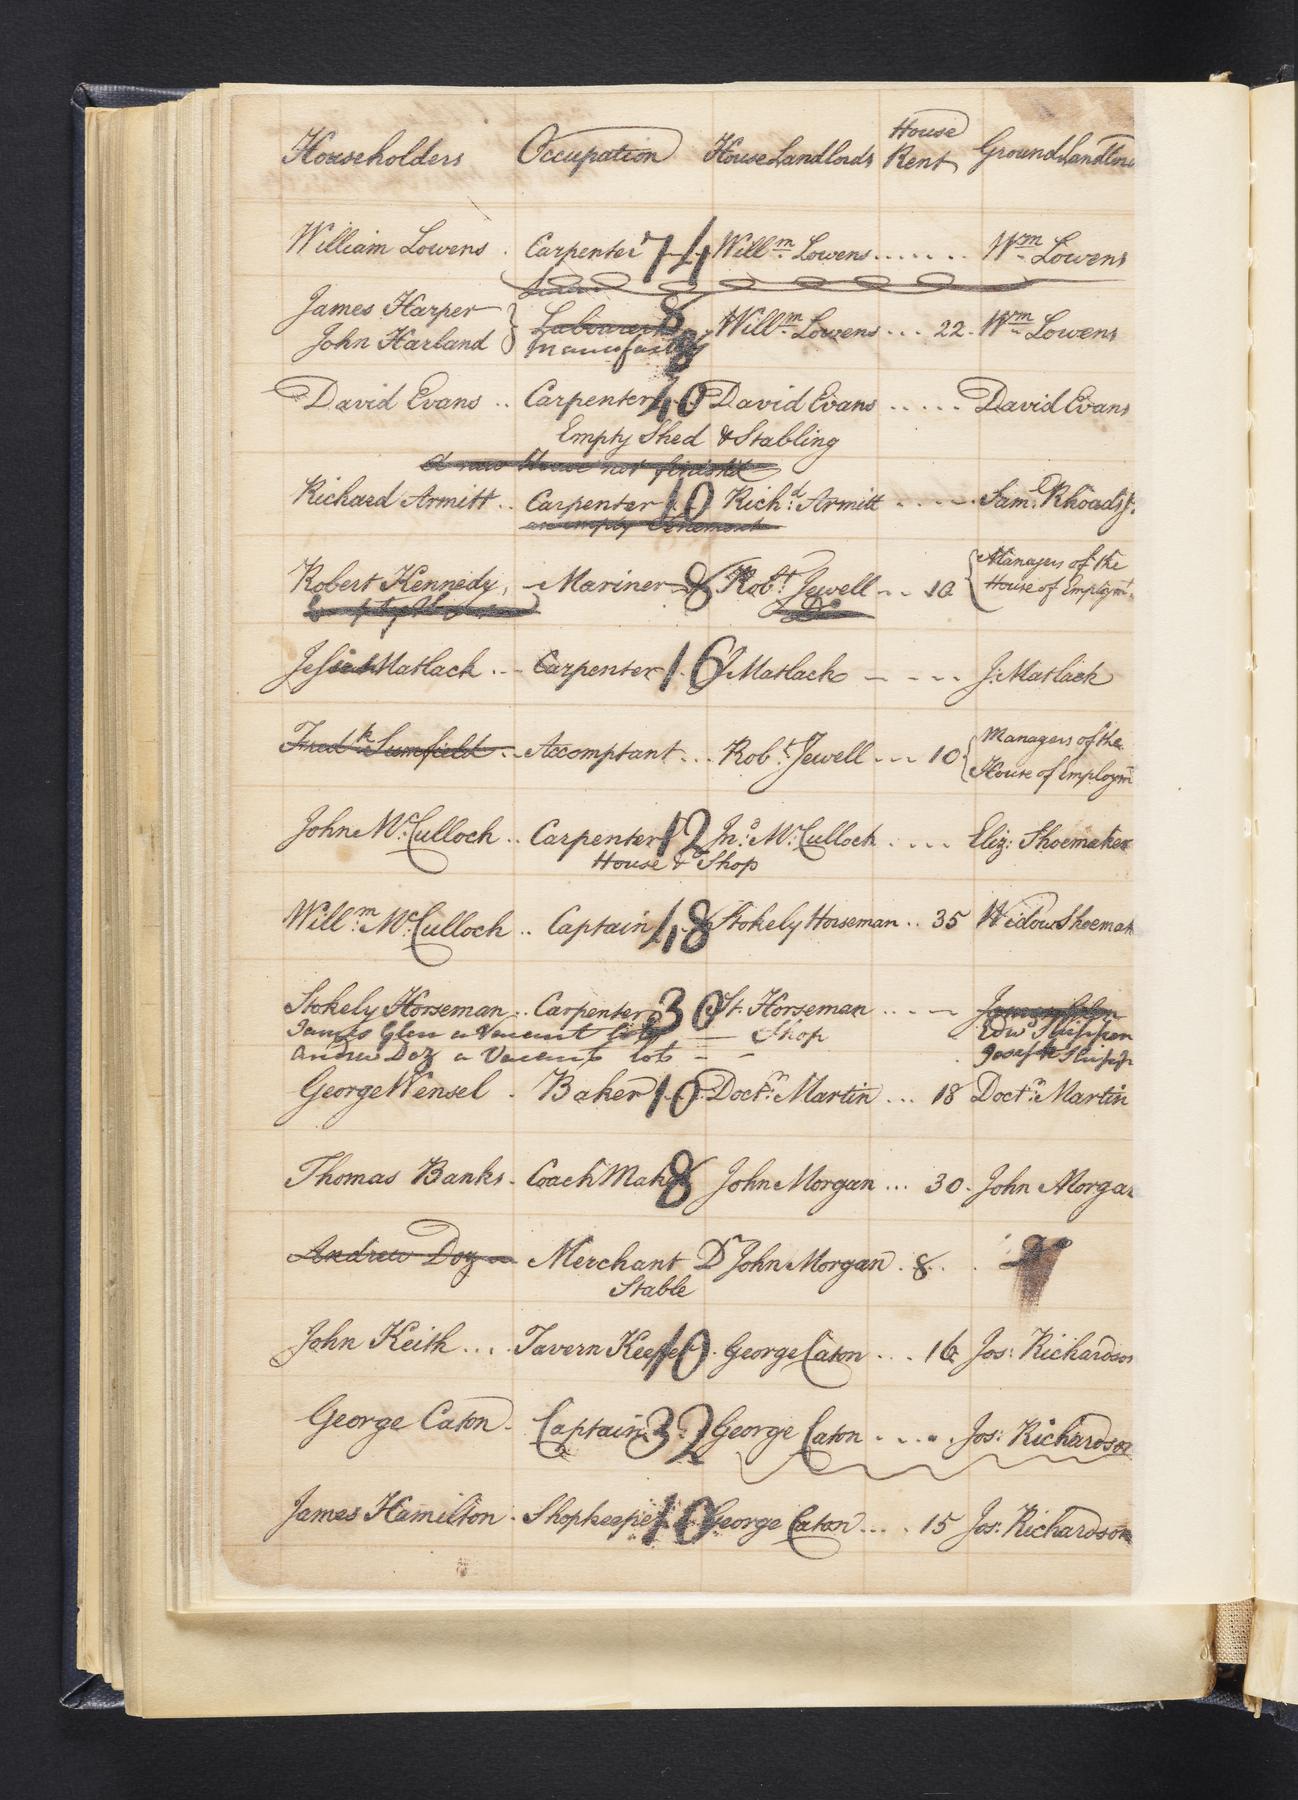 Householders Occupation House Landlords House Rent Ground Landlor
William Lowens . Carpenter 74 Will.m Lowens ....... Wm. Lowens
James Harper
John Harland } Labourers 8 Will.m Lowens ... 22. Wm. Lowens
manufactory
David Evans .. Carpenter 40 David Evans ..... David Evans
Empty Shed & Stabling
a new House not finished
Richard Armitt .. Carpenter 10 Rich.d Armitt ..... Sam.l Rhoads J.
an empty Tenement
Robert Kennedy, - Mariner 8 Rob.t Jewell -.. 10 { Managers of the
House of Employm.t
Matlack ... Carpenter 16 J Matlack - - - - J. Matlack
Fred.k .. Accomptant ... Rob.t Jewell ... 10 { Managers of the
House of Employm
John Mc.Culloch .. Carpenter 12 Jn.o Mc.Culloch .... Eliz: Shoemaker
House & Shop
Will.m Mc.Culloch .. Captain 48 Stokely Horseman .. 35 Widow Shoemak
Stokely Horseman .. Carpenter 30 St. Horseman ....
James Glen a Vacant lott — Shop Edw.d Shippen
Andrew Doz a Vacant lott - - Joseph Shipp
George Wensel . Baker 10 Doct.r Martin ... 18 Doct.r Martin
Thomas Banks . Coach Mak 8 John Morgan ... 30 . John Morgan
Andrew Doz Merchant Dr John Morgan . 8 . . Do
Stable
John Keith .... Tavern Keeper 10 . George Caton ... 16 Jos: Richardson
George Caton . Captain 32 George Caton .... Jos: Richardson
James Hamilton . Shopkeeper 10 George Caton .... 15 Jos: Richardson